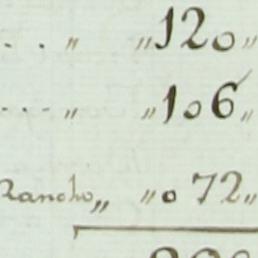 ... " "120"
... " "106"
Rancho" "072"